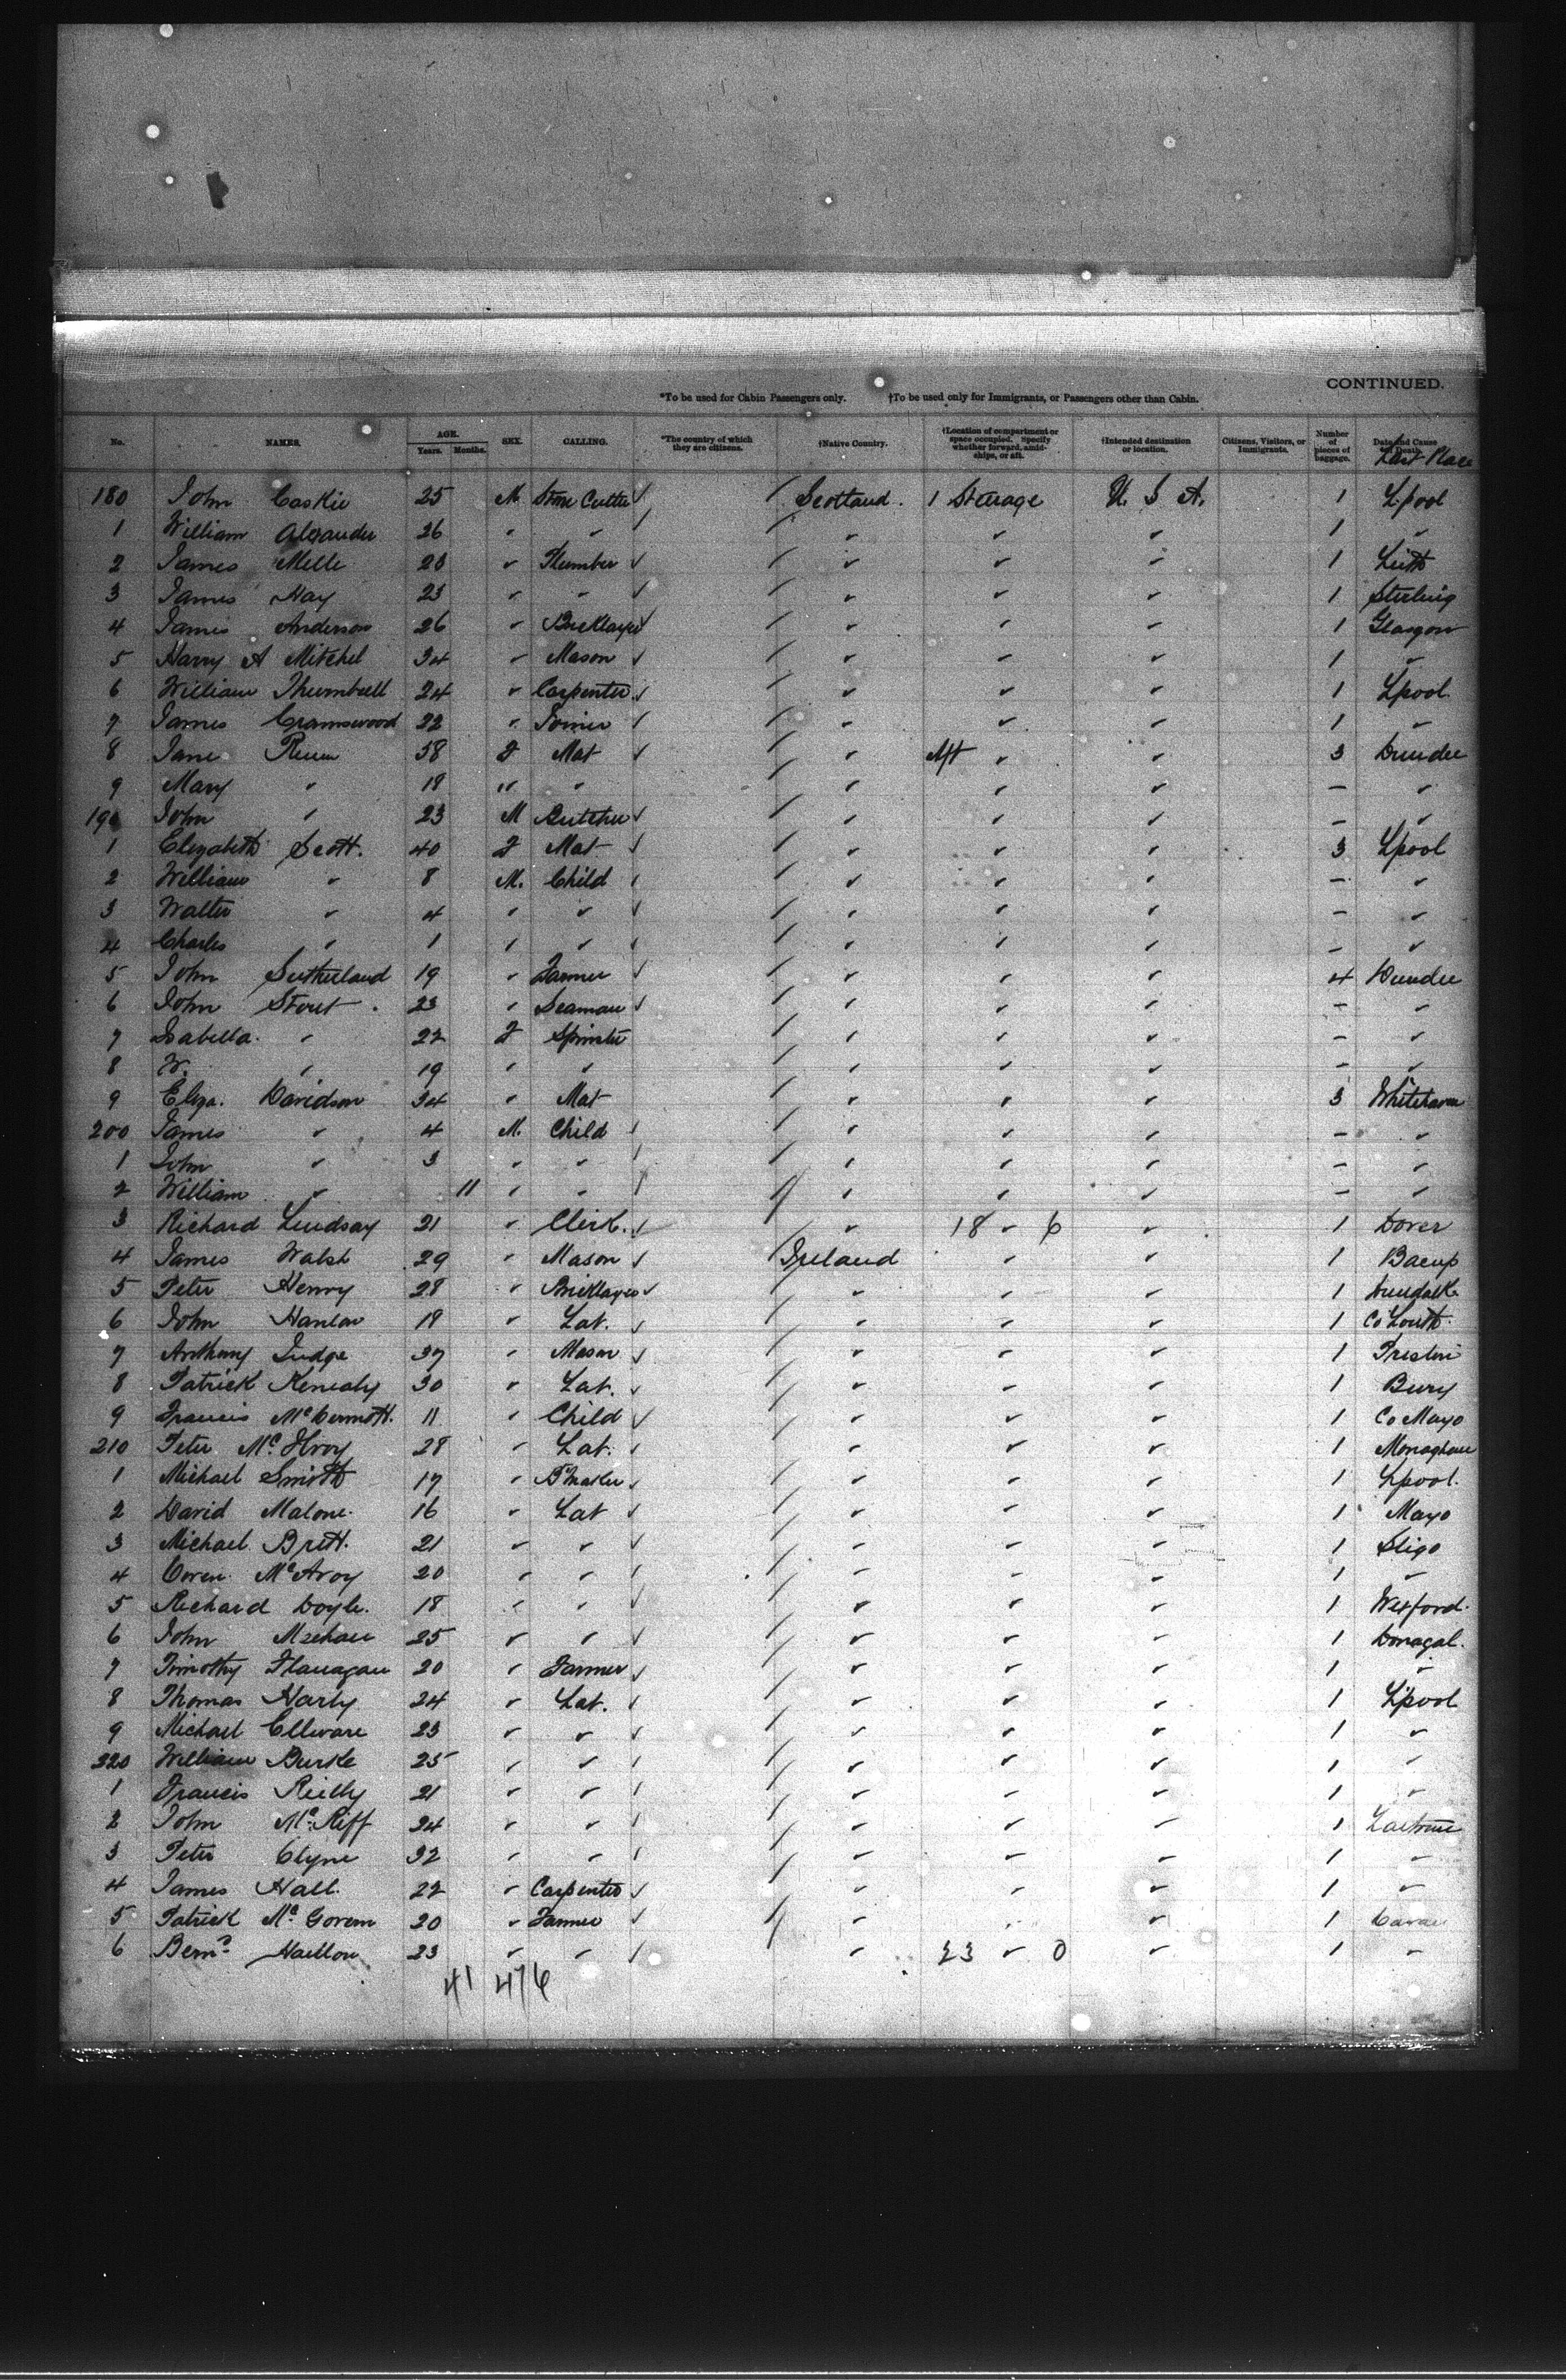 CONTINUED.
*To be used for Cabin Passengers only. †To be used only for Immigrants, or Passengers other than Cabin.
No. NAMES. AGE. Years. Months. SEX. CALLING. *The country of which they are citizens. †Native Country. †Location of compartment or space occupied. Specify whether forward, amidships, or aft. †Intended destination or location. Citizens, Visitors, or Immigrants. Number of pieces of baggage. Date and Cause of Death. Last Place
180 John Caskie 25 M. Stone Cutter Scotland. 1 Steerage U. S. A. 1 L'pool
1 William Alexander 26 " " " " " 1 "
2 James 23 " Plumber " " " 1 Leith
3 James Hay 23 " " " " " 1 Sterling
4 James Anderson 26 " Bricklayer " " " 1 Glasgow
5 Harry A Mitchel 34 " Mason " " " 1 "
6 William 24 " Carpenter " " " 1 L'pool
7 James 22 " Joiner " " " 1 "
8 Jane 58 F Mat " Aft " " 3 Dundee
9 Mary " 18 " " " " " - "
190 John " 23 M Butcher " " " - "
1 Elizabeth Scott. 40 F Mat " " " 3 L'pool
2 William " 8 M. Child " " " - "
3 Walter " 4 " " " " " - "
4 Charles " 1 " " " " " - "
5 John Sutherland 19 " Farmer " " " 4 Dundee
6 John Stout 23 " Seaman " " " - "
7 Isabella " 22 F Spinster " " " - "
8 W. " 19 " " " " " - "
9 Eliza. Davidson 34 " Mat " " " 3 Whitehaven
200 James " 4 M. Child " " " - "
1 John " 3 " " " " " - "
2 William " 11 " " " " " - "
3 Richard Lindsay 21 " Clerk. " 18 " 6 " 1 Dover
4 James Walsh 29 " Mason Ireland " " 1 Bacup
5 Peter Henry 28 " Bricklayer " " " 1 Dundalk
6 John Hanlon 19 " Lab. " " " 1 Co Louth
7 Anthony Judge 37 " Mason " " " 1 Preston
8 Patrick Kenealy 30 " Lab. " " " 1 Bury
9 Francis McDermott. 11 " Child " " " 1 Co Mayo
210 Peter McIlroy 28 " Lab. " " " 1 Monaghan
1 Michael Smith 17 " B'maker " " " 1 L'pool.
2 David Malone. 16 " Lab " " " 1 Mayo
3 Michael Brett. 21 " " " " " 1 Sligo
4 Owen McAvoy 20 " " " " " 1 "
5 Richard Doyle. 18 " " " " " 1 Wexford.
6 John Meehan 25 " " " " " 1 Donagal.
7 Timothy Flanagan 20 " Farmer " " " 1 "
8 Thomas Harly 24 " Lab. " " " 1 L'pool
9 Michael 23 " " " " " 1 "
320 William Burke 25 " " " " " 1 "
1 Francis Reilly 21 " " " " " 1 "
2 John 24 " " " " " 1
3 Peter Clyne 32 " " " " " 1 "
4 James Hall. 22 " Carpenter " " " 1 "
5 Patrick McGovern 20 " Farmer " " " 1 Cavan
6 Bernd 23 " " " 23 " 0 " 1 "
41 4716